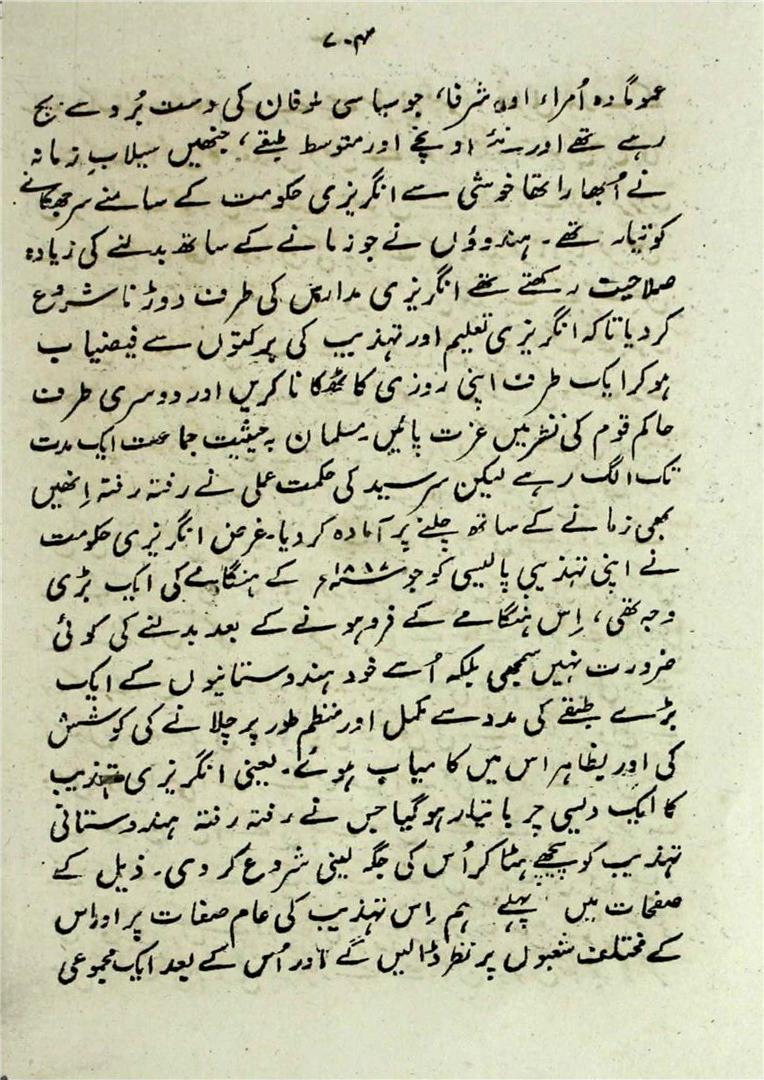 ۷۰۴
عموماً وہ اُمراء اور شرفا، جو سیاسی طوفان کی دست بُرد سے بچ
رہے تھے اور نئے اونچے اور متوسط طبقے، جنھیں سیلابِ زمانہ
نے اُبھارا تھا خوشی سے انگریزی حکومت کے سامنے سر جھکانے
کو تیار تھے۔ ہندوؤں نے جو زمانے کے ساتھ بدلنے کی زیادہ
صلاحیت رکھتے تھے انگریزی مدارس کی طرف دوڑنا شروع
کر دیا تاکہ انگریزی تعلیم اور تہذیب کی برکتوں سے فیضیاب
ہو کر ایک طرف اپنی روزی کا ٹھکانا کریں اور دوسری طرف
حاکم قوم کی نظر میں عزت پائیں۔ مسلمان بہ حیثیت جماعت ایک مدت
تک الگ رہے لیکن سر سید کی حکمت عملی نے رفتہ رفتہ اِنھیں
بھی زمانے کے ساتھ چلنے پر آمادہ کر دیا۔ غرض انگریزی حکومت
نے اپنی تہذیبی پالیسی کو جو ۱۸۵۷ء کے ہنگامے کی ایک بڑی
وجہ تھی، اِس ہنگامے کے فرو ہونے کے بعد بدلنے کی کوئی
ضرورت نہیں سمجھی بلکہ اُسے خود ہندوستانیوں کے ایک
بڑے طبقے کی مدد سے مکمل اور منظم طور پر چلانے کی کوشش
کی اور بظاہر اس میں کامیاب ہوئے۔ یعنی انگریزی تہذیب
کا ایک دیسی چربا تیار ہو گیا جس نے رفتہ رفتہ ہندوستانی
تہذیب کو پیچھے ہٹا کر اُس کی جگہ لینی شروع کر دی۔ ذیل کے
صفحات میں پہلے ہم اِس تہذیب کی عام صفات پر اور اس
کے مختلف شعبوں پر نظر ڈالیں گے اور اُس کے بعد ایک مجموعی